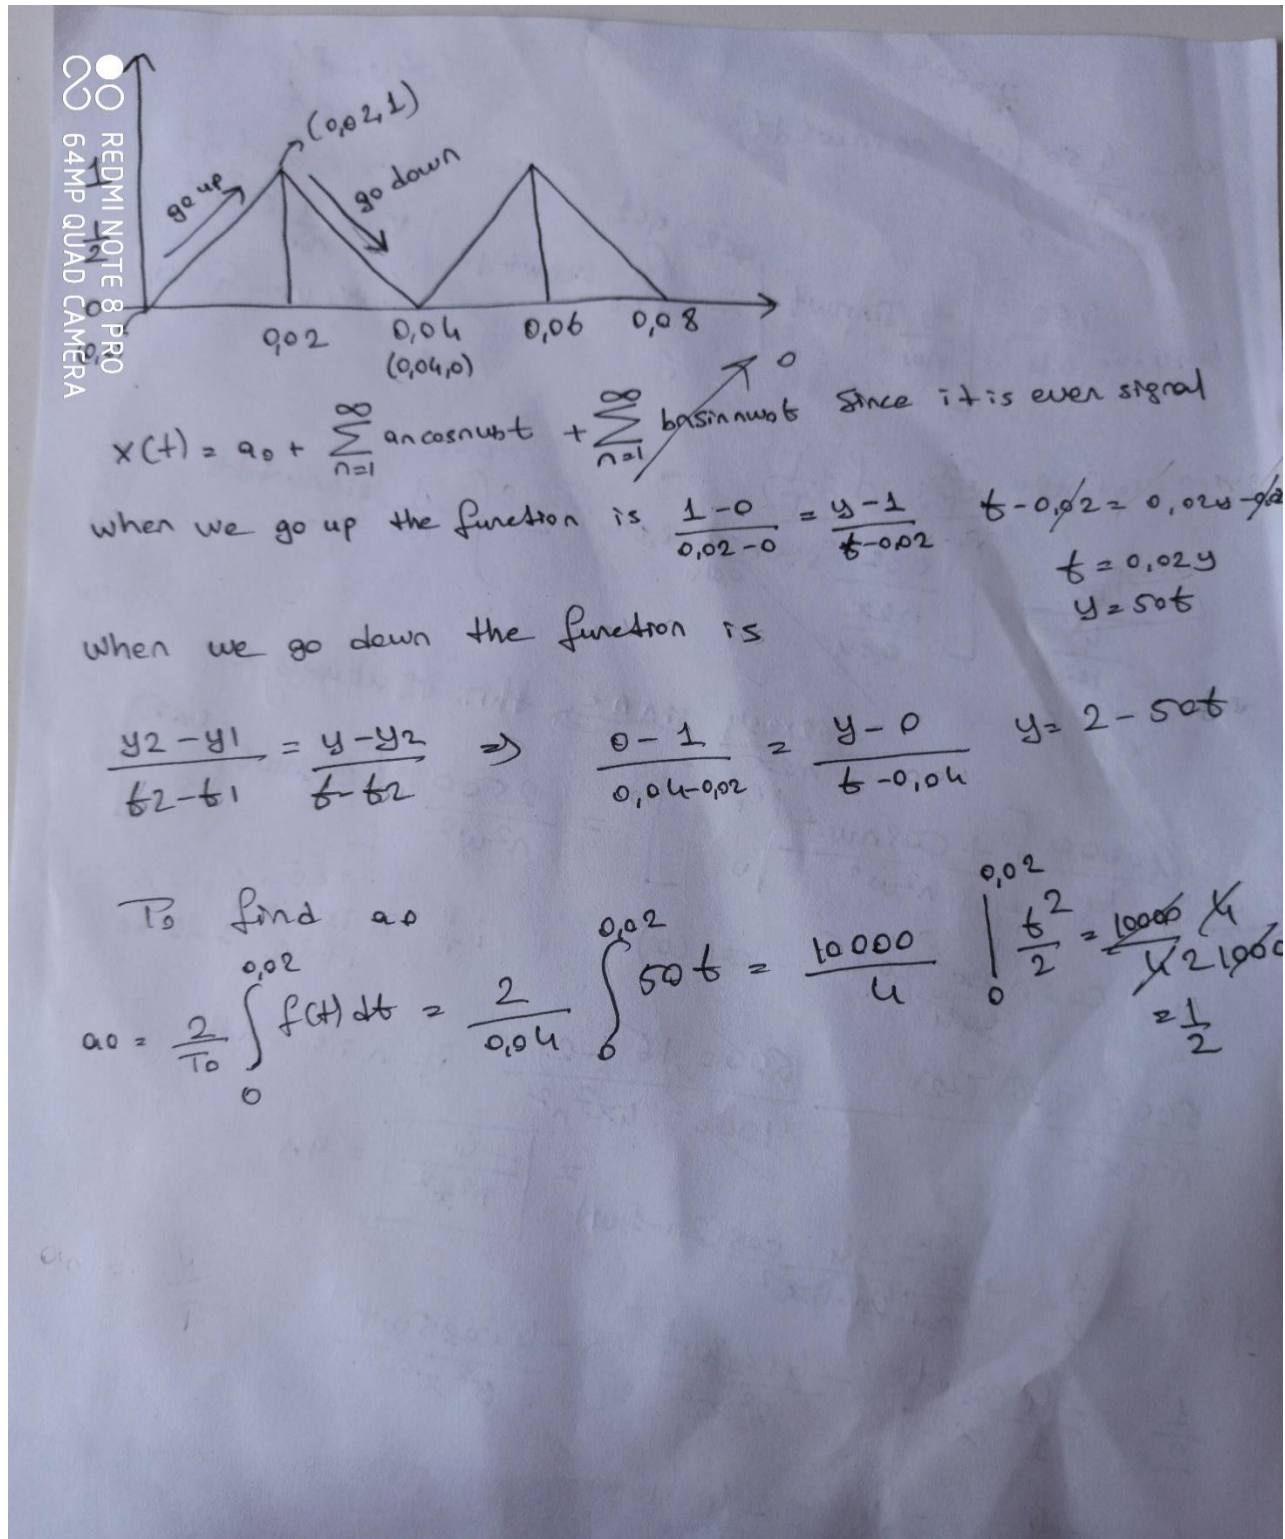 REDMI NOTE 8 PRO
64MP QUAD CAMERA
(0,02,1)
go up
go down
1
1/2
0
0,02
0,04
0,06
0,08
(0,04,0)
x(t) = a0 + ∞ Σ n=1 an cosnw0t + ∞ Σ n=1 bnsinnw0t 0 Since it is even signal
when we go up the function is 1-0 / 0,02-0 = y-1 / t-0,02 t-0,02 = 0,02y-0,02
t = 0,02y
y = 50t
When we go down the function is
y2-y1 / t2-t1 = y-y2 / t-t2 => 0-1 / 0,04-0,02 = y-0 / t-0,04 y = 2-50t
To find a0
a0 = 2/T0 ∫ 0 0,02 f(t) dt = 2/0,04 ∫ 0 0,02 50t = 10000/4 | 0 0,02 t²/2 = 10000/4 4/2 10000
= 1/2